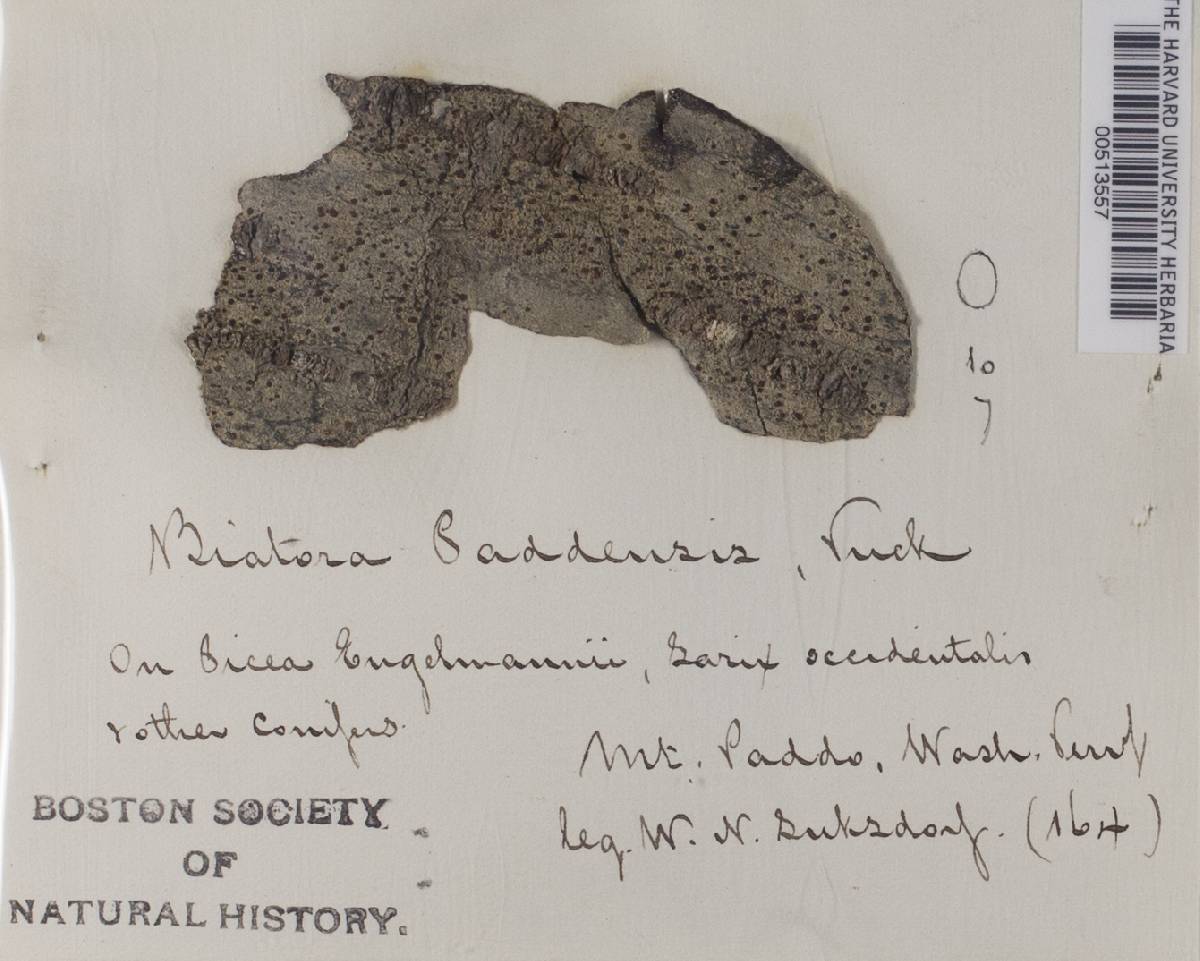 THE HARVARD UNIVERSITY HERBARIA
00513557
10
7
Biatora Paddensis, Tuck
On Picea Engelmannii, Larix occidentalis
& other conifers.
Mt. Paddo, Wash. Terr
leg. W. N. Suksdorf. (164)
BOSTON SOCIETY
OF
NATURAL HISTORY.